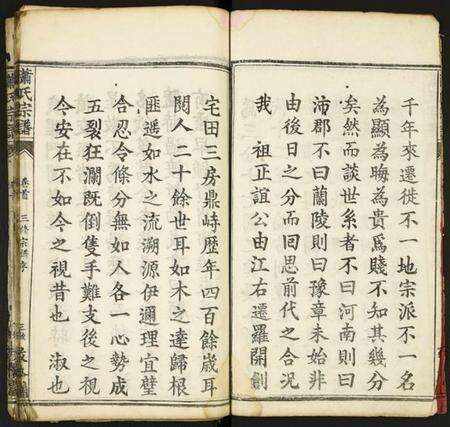 千年來遷徙不一地宗派不一名
為顯為晦為貴爲賤不知其幾分
矣然而談世系者不曰河南則曰
沛郡不曰蘭陵則曰豫章未始非
由後日之分而囘思前代之合况
我　祖正誼公由江右遷羅開創
宅田三房鼎峙歷年四百餘歲耳
閱人二十餘世耳如木之達歸根
匪遥如水之流溯源伊邇理宜璧
合忍令條分無如人各一心勢成
五裂狂瀾既倒隻手難支後之視
今安在不如今之視昔也　淑也
蕭氏宗譜
卷首　三修宗譜序